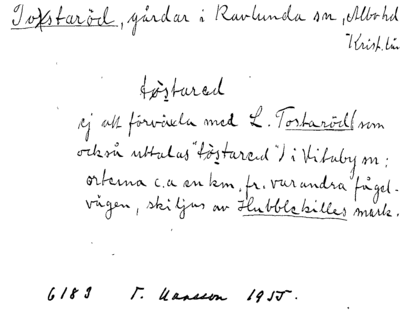 Tostaröd, gårdar i Ravlunda sn, Albo hd
Krist. län
töstared
ej att förväxla med L. Tostaröd (som
också uttalas "töstared") i Vitaby sn;
orterna c.a en km. fr. varandra fågel-
vägen, skiljas av Hubbleskilles mark.
6183 T. Hansson 1955.